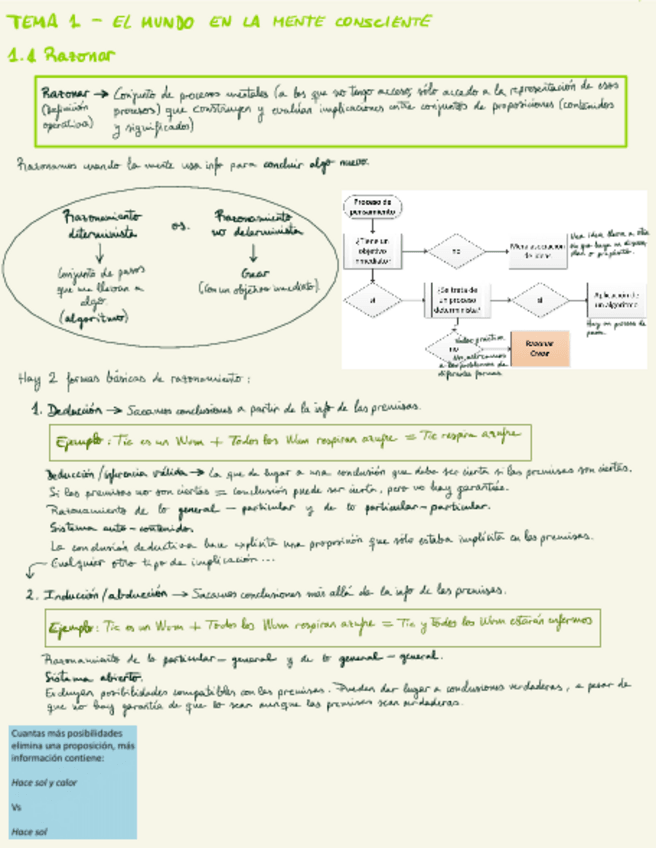 TEMA 1 - EL MUNDO EN LA MENTE CONSCIENTE
1.1 Razonar
Razonar → Conjunto de procesos mentales (a los que no tengo acceso, sólo accedo a la representación de esos
(Definición procesos) que construyen y evalúan implicaciones entre conjuntos de proposiciones (contenidos
operativa) y significados)
Razonamos cuando la mente usa info para concluir algo nuevo.
Razonamiento determinista
vs.
Razonamiento no determinista
↓
Conjunto de pasos
que me llevan a
algo.
(algoritmo)
↓
Crear
(con un objetivo inmediato).
Proceso de
pensamiento
¿Tiene un
objetivo
inmediato?
no
Mera asociación
de ideas
Una idea lleva a otra
sí
¿Se trata de
un proceso
determinista?
sí
Aplicación de
un algoritmo
no
Razonar
Crear
Hay 2 formas básicas de razonamiento:
1. Deducción → Sacamos conclusiones a partir de la info de las premisas.
Ejemplo: Tic es un Wum + Todos los Wum respiran azufre = Tic respira azufre
Deducción/inferencia válida → La que da lugar a una conclusión que debe ser cierta si las premisas son ciertas.
Si las premisas no son ciertas = conclusión puede ser cierta, pero no hay garantía.
Razonamiento de lo general - particular y de lo particular - particular.
Sistema auto-contenido.
La conclusión deductiva hace explícita una proposición que sólo estaba implícita en las premisas.
Cualquier otro tipo de implicación...
2. Inducción/abducción → Sacamos conclusiones más allá de la info de las premisas.
Ejemplo: Tic es un Wum + Todos los Wum respiran azufre = Tic y todos los Wum estarán enfermos
Razonamiento de lo particular - general y de lo general - general.
Sistema abierto.
Excluyen posibilidades compatibles con las premisas. Pueden dar lugar a conclusiones verdaderas, a pesar de
que no hay garantía de que lo sean aunque las premisas sean verdaderas.
Cuantas más posibilidades
elimina una proposición, más
información contiene:
Hace sol y calor
Vs
Hace sol